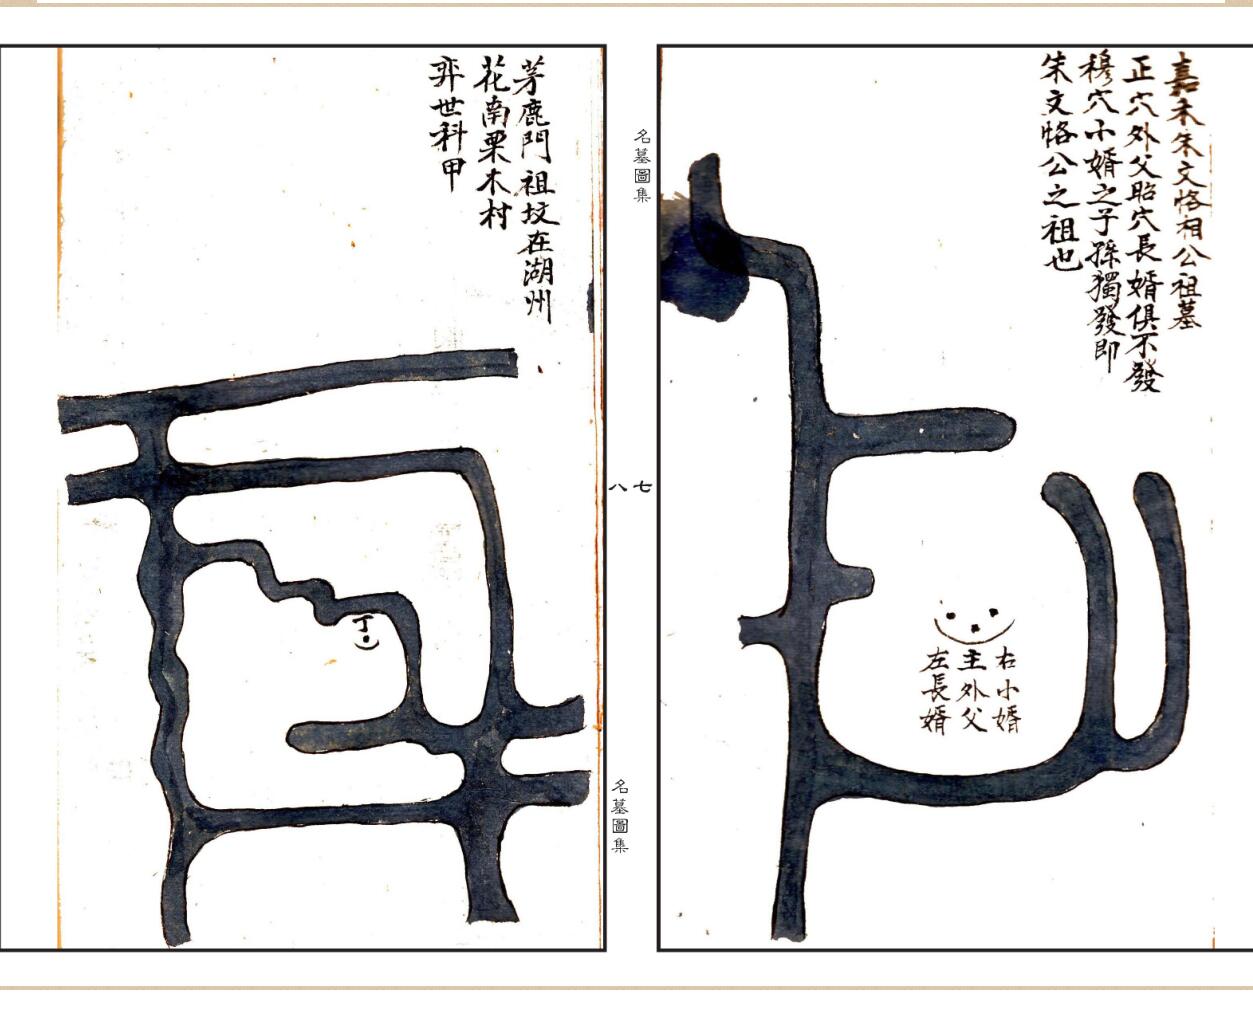 嘉禾朱文恪相公祖墓
正穴外父昭穴長婿俱不發
穆穴小婿之子孫獨發即
朱文恪公之祖也
右小婿
主外父
左長婿
名墓圖集
七
八
茅鹿門祖坟在湖州
花南栗木村
弈世科甲
丁
名墓圖集